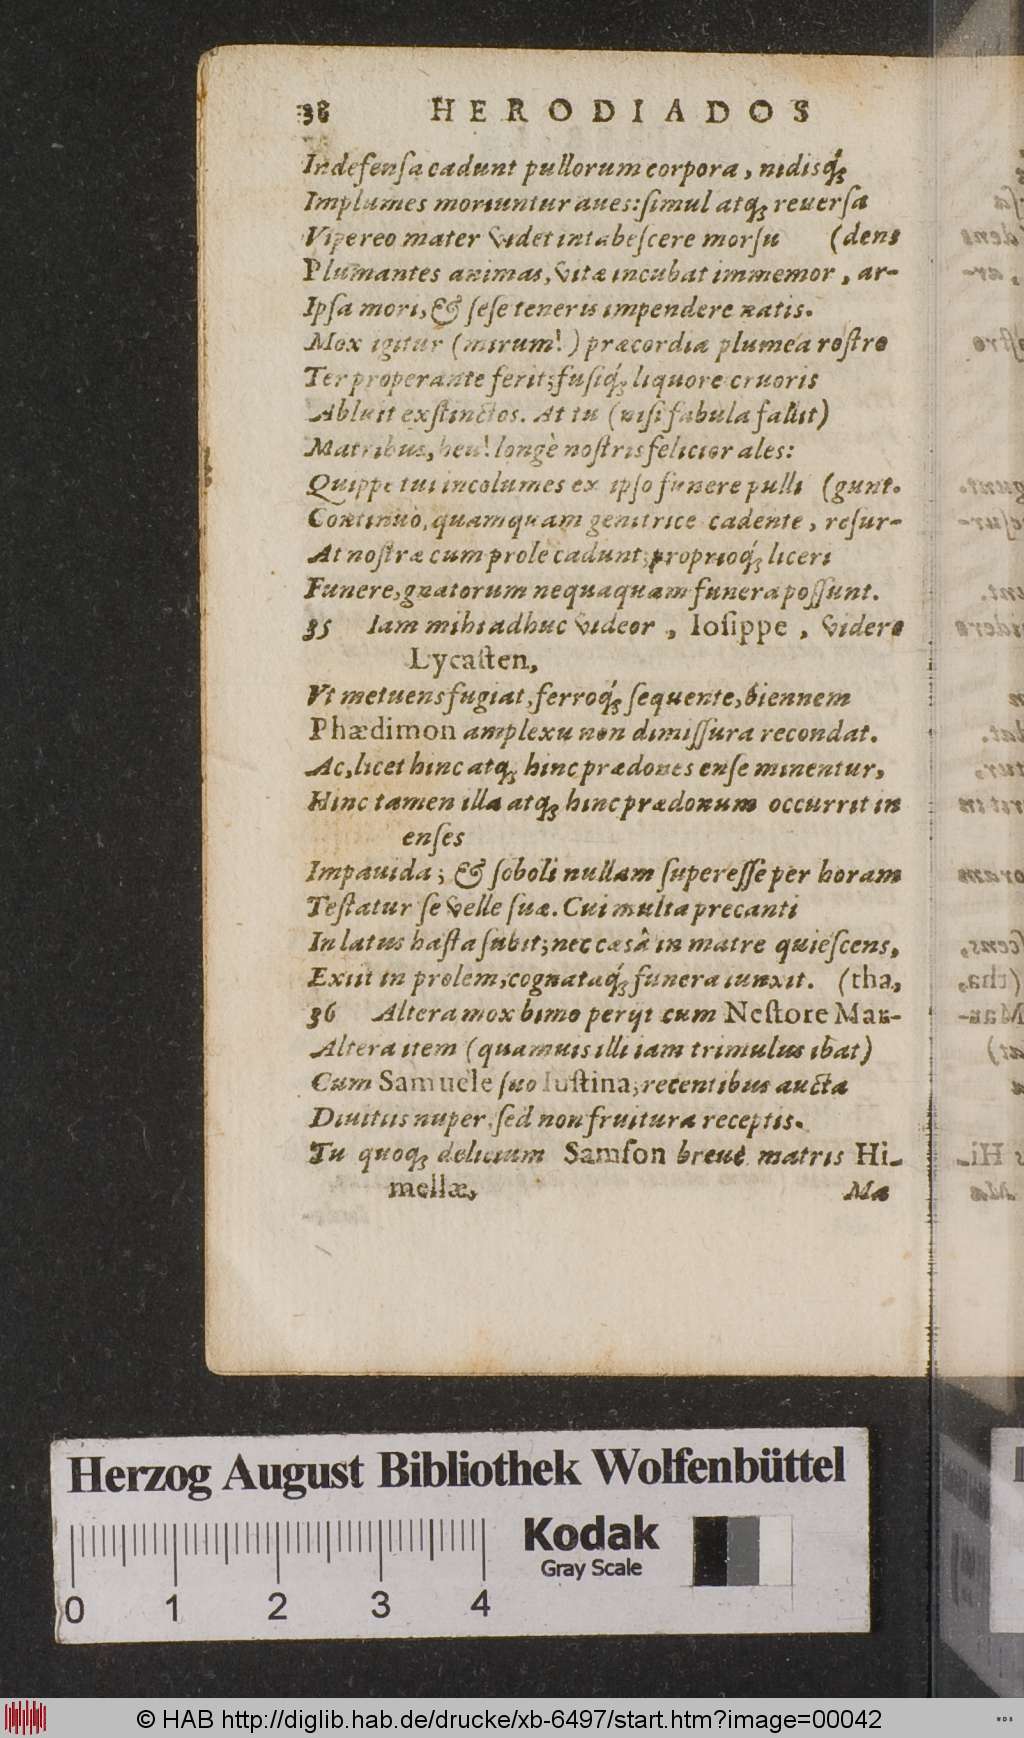 38 HERODIADOS
Indefensa cadunt pullorum corpora, nidisq́;
Implumes moriuntur aues: simul atq; reuersa
Vipereo mater videt intabescere morsu (dens
Plumantes animas, vitæ incubat immemor, ar-
Ipsa mori, & sese teneris impendere natis.
Mox igitur (mirum!) præcordia plumea rostro
Ter properante ferit; fusiq́; liquore cruoris
Abluit exstinctos. At tu (nisi fabula fallit)
Matribus, heu! longè nostris felicior ales:
Quippe tui incolumes ex ipso funere pulli (gunt.
Continuò, quamquam genitrice cadente, resur-
At nostræ cum prole cadunt; proprioq́; liceri
Funere, gnatorum nequaquam funera possunt.
35 Iam mihi adhuc videor, Iosippe, videre
Lycasten,
Vt metuens fugiat, ferroq́; sequente, biennem
Phædimon amplexu non dimissura recondat.
Ac, licet hinc atq; hinc prædones ense minentur,
Hinc tamen illa atq; hinc prædonum occurrit in
enses
Impauida; & soboli nullam superesse per horam
Testatur se velle suæ. Cui multa precanti
In latus hasta subit; nec cæsâ in matre quiescens,
Exiit in prolem, cognataq́; funera iunxit. (tha,
36 Altera mox bimo perijt cum Nestore Mar-
Altera item (quamuis illi iam trimulus ibat)
Cum Samuele suo Iustina, recentibus aucta
Diuitiis nuper, sed non fruitura receptis.
Tu quoq; delicium Samson breue matris Hi-
mellæ,
Ma
Herzog August Bibliothek Wolfenbüttel
Kodak
Gray Scale
0 1 2 3 4
© HAB http://diglib.hab.de/drucke/xb-6497/start.htm?image=00042